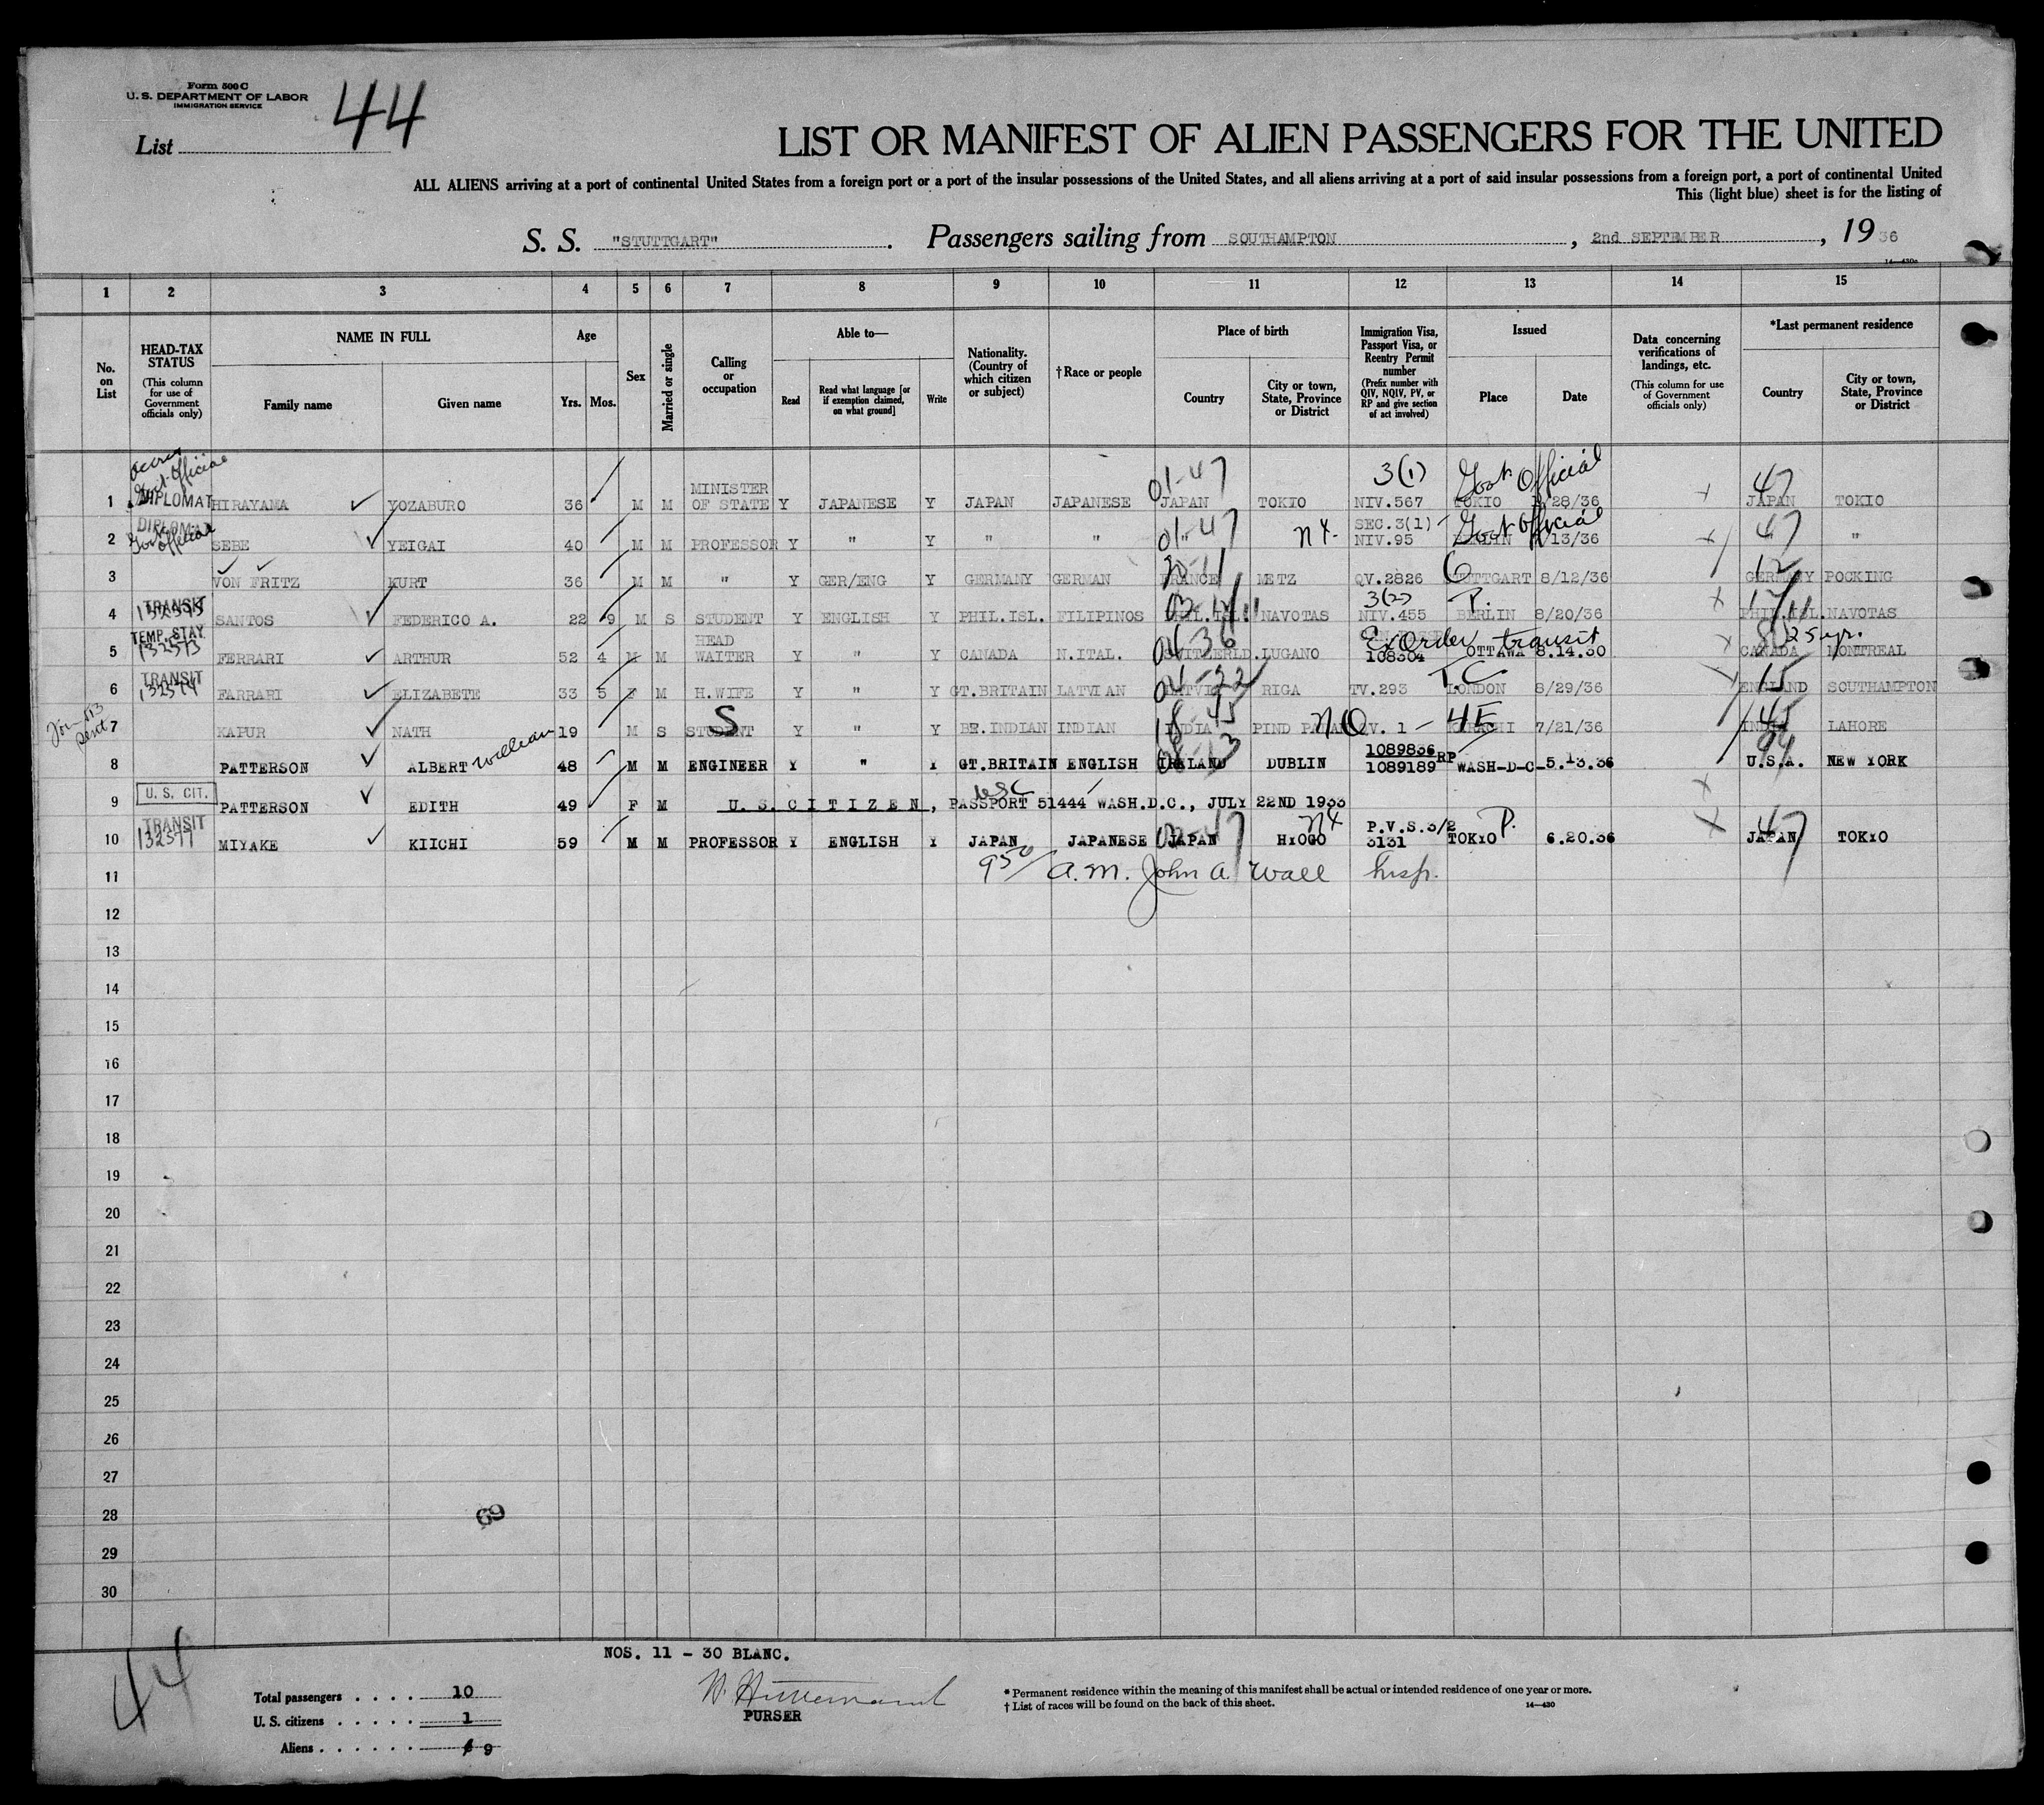 Form 500 C
U. S. DEPARTMENT OF LABOR
IMMIGRATION SERVICE
List 44
LIST OR MANIFEST OF ALIEN PASSENGERS FOR THE UNITED
ALL ALIENS arriving at a port of continental United States from a foreign port or a port of the insular possessions of the United States, and all aliens arriving at a port of said insular possessions from a foreign port, a port of continental United
This (light blue) sheet is for the listing of
S. S. "STUTTGART". Passengers sailing from SOUTHAMPTON, 2nd SEPTEMBER, 1936
1 2 3 4 5 6 7 8 9 10 11 12 13 14 15
No. on List
HEAD-TAX STATUS (This column for use of Government officials only)
NAME IN FULL Family name Given name
Age Yrs. Mos.
Sex
Married or single
Calling or occupation
Able to— Read Read what language [or if exemption claimed, on what ground] Write
Nationality. (Country of which citizen or subject)
†Race or people
Place of birth Country City or town, State, Province or District
Immigration Visa, Passport Visa, or Reentry Permit number (Prefix number with QIV, NQIV, PV, or RP and give section of act involved)
Issued Place Date
Data concerning verifications of landings, etc. (This column for use of Government officials only)
*Last permanent residence Country City or town, State, Province or District
1 Govt. Official DIPLOMAT HIRAYAMA YOZABURO 36 M M MINISTER OF STATE Y JAPANESE Y JAPAN JAPANESE 01-47 JAPAN TOKIO 3(1) NIV.567 Govt Official TOKIO /28/36 47 JAPAN TOKIO
2 DIPLOMAT Govt official SEBE YEIGAI 40 M M PROFESSOR Y " Y " " 01-47 " nx- SEC.3(1) NIV.95 Govt Official /13/36 47 "
3 VON FRITZ KURT 36 M M " Y GER/ENG Y GERMANY GERMAN FRANCE METZ QV.2826 6 STUTTGART 8/12/36 12 GERMANY POCKING
4 TRANSIT SANTOS FEDERICO A. 22 9 M S STUDENT Y ENGLISH Y PHIL.ISL. FILIPINOS PHIL.ISL NAVOTAS 3(2) NIV.455 P. BERLIN 8/20/36 PHIL.ISL NAVOTAS
5 TEMP. STAY 132573 FERRARI ARTHUR 52 4 M M HEAD WAITER Y " Y CANADA N.ITAL. 04-36 SWITZERLD. LUGANO Ex Order transit 108304 OTTAWA 8.14.30 25 yr. CANADA MONTREAL
6 TRANSIT 132574 FARRARI ELIZABETE 33 5 F M H.WIFE Y " Y GT.BRITAIN LATVIAN 04-22 LATVIA RIGA TV.293 T.C LONDON 8/29/36 15 ENGLAND SOUTHAMPTON
7 KAPUR NATH 19 M S S STUDENT Y " Y BR.INDIAN INDIAN 18-45 INDIA PIND NQ V. 1 - 4E KARACHI 7/21/36 45 INDIA LAHORE
8 PATTERSON ALBERT William 48 M M ENGINEER Y " Y GT.BRITAIN ENGLISH 08-13 IRELAND DUBLIN 1089836 1089189 RP WASH-D-C- 5.13.36 99 U.S.A. NEW YORK
9 U. S. CIT. PATTERSON EDITH 49 F M U. S. C I T I Z E N, PASSPORT 51444 WASH.D.C., JULY 22ND 1933 USC
10 TRANSIT 132577 MIYAKE KIICHI 59 M M PROFESSOR Y ENGLISH Y JAPAN JAPANESE 02-47 JAPAN HYOGO nx P.V.S.3/2 3131 TOKYO P. 6.20.36 47 JAPAN TOKYO
11 9 50/ a.m. John A. Wall Insp.
12
13
14
15
16
17
18
19
20
21
22
23
24
25
26
27
28 69
29
30
NOS. 11 - 30 BLANC.
44
Total passengers . . . . 10
U. S. citizens . . . . . 1
Aliens . . . . . . 9
PURSER
* Permanent residence within the meaning of this manifest shall be actual or intended residence of one year or more.
† List of races will be found on the back of this sheet.
14—430